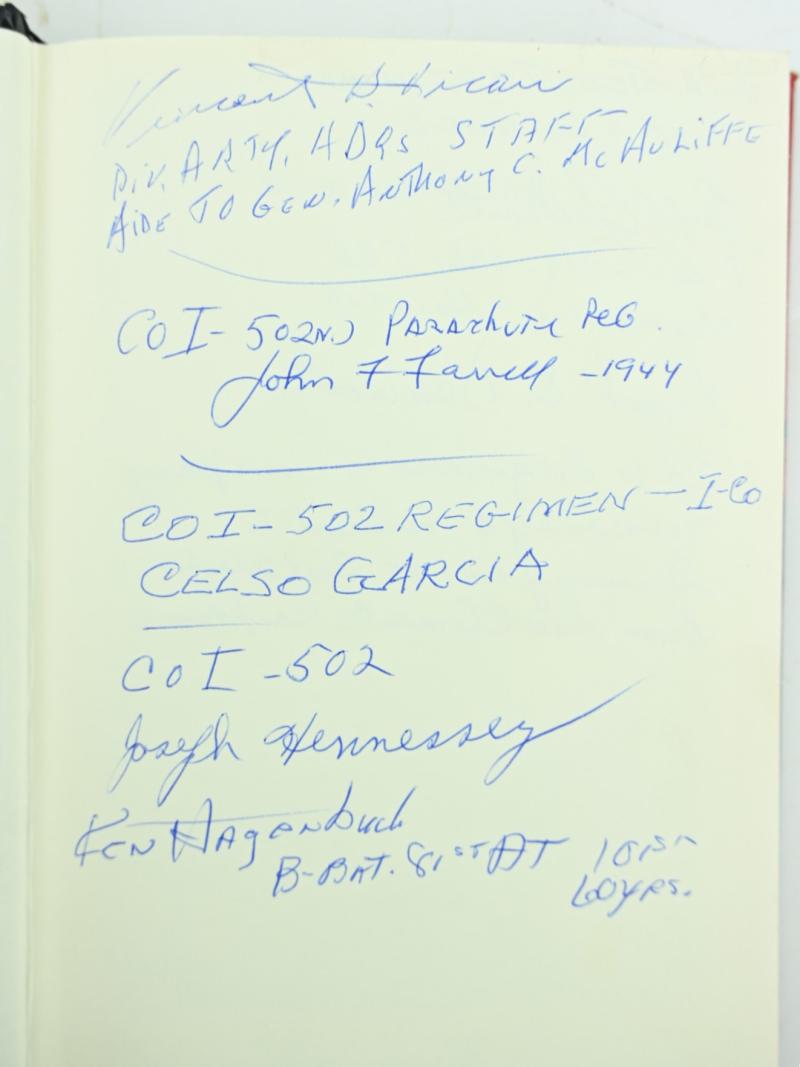 Vincent B. Vicari
DIV. ARTY. HDQs STAFF
AIDE TO GEN. ANTHONY C. McAULIFFE
CO I - 502ND PARACHUTE REG.
John F Farrell - 1944
CO I - 502 REGIMEN - I-Co
CELSO GARCIA
Co I - 502
Joseph Hennessey
KEN HAgENbuch
B-BAT. 81ST AT 101ST
60yrs.